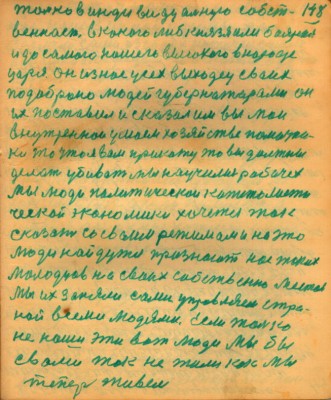 только в индивидуалную собст- 148
веннаст. в каково либ князя или бояроя
и до самого нашего великого в народе
царя он из нас усех выходец сваих
подобрано людей губернатарами он
их поставил и сказал им вы мои
внутренной умаем хозяйстве помошни-
ки то что я вам прикажу то вы должны
делать убивать мы научились рабочех
мы люди палитической капитолисти
ческой экономики хочется так
сказать со сваим режимам и на это
люди найдутся признают нас таких
молодцов на сваих собствено местах
мы их заняли сами управляем стра-
ной всеми людями. Если только
не наши эти вот люди мы бы
свами так не жили как мы
тепер живем